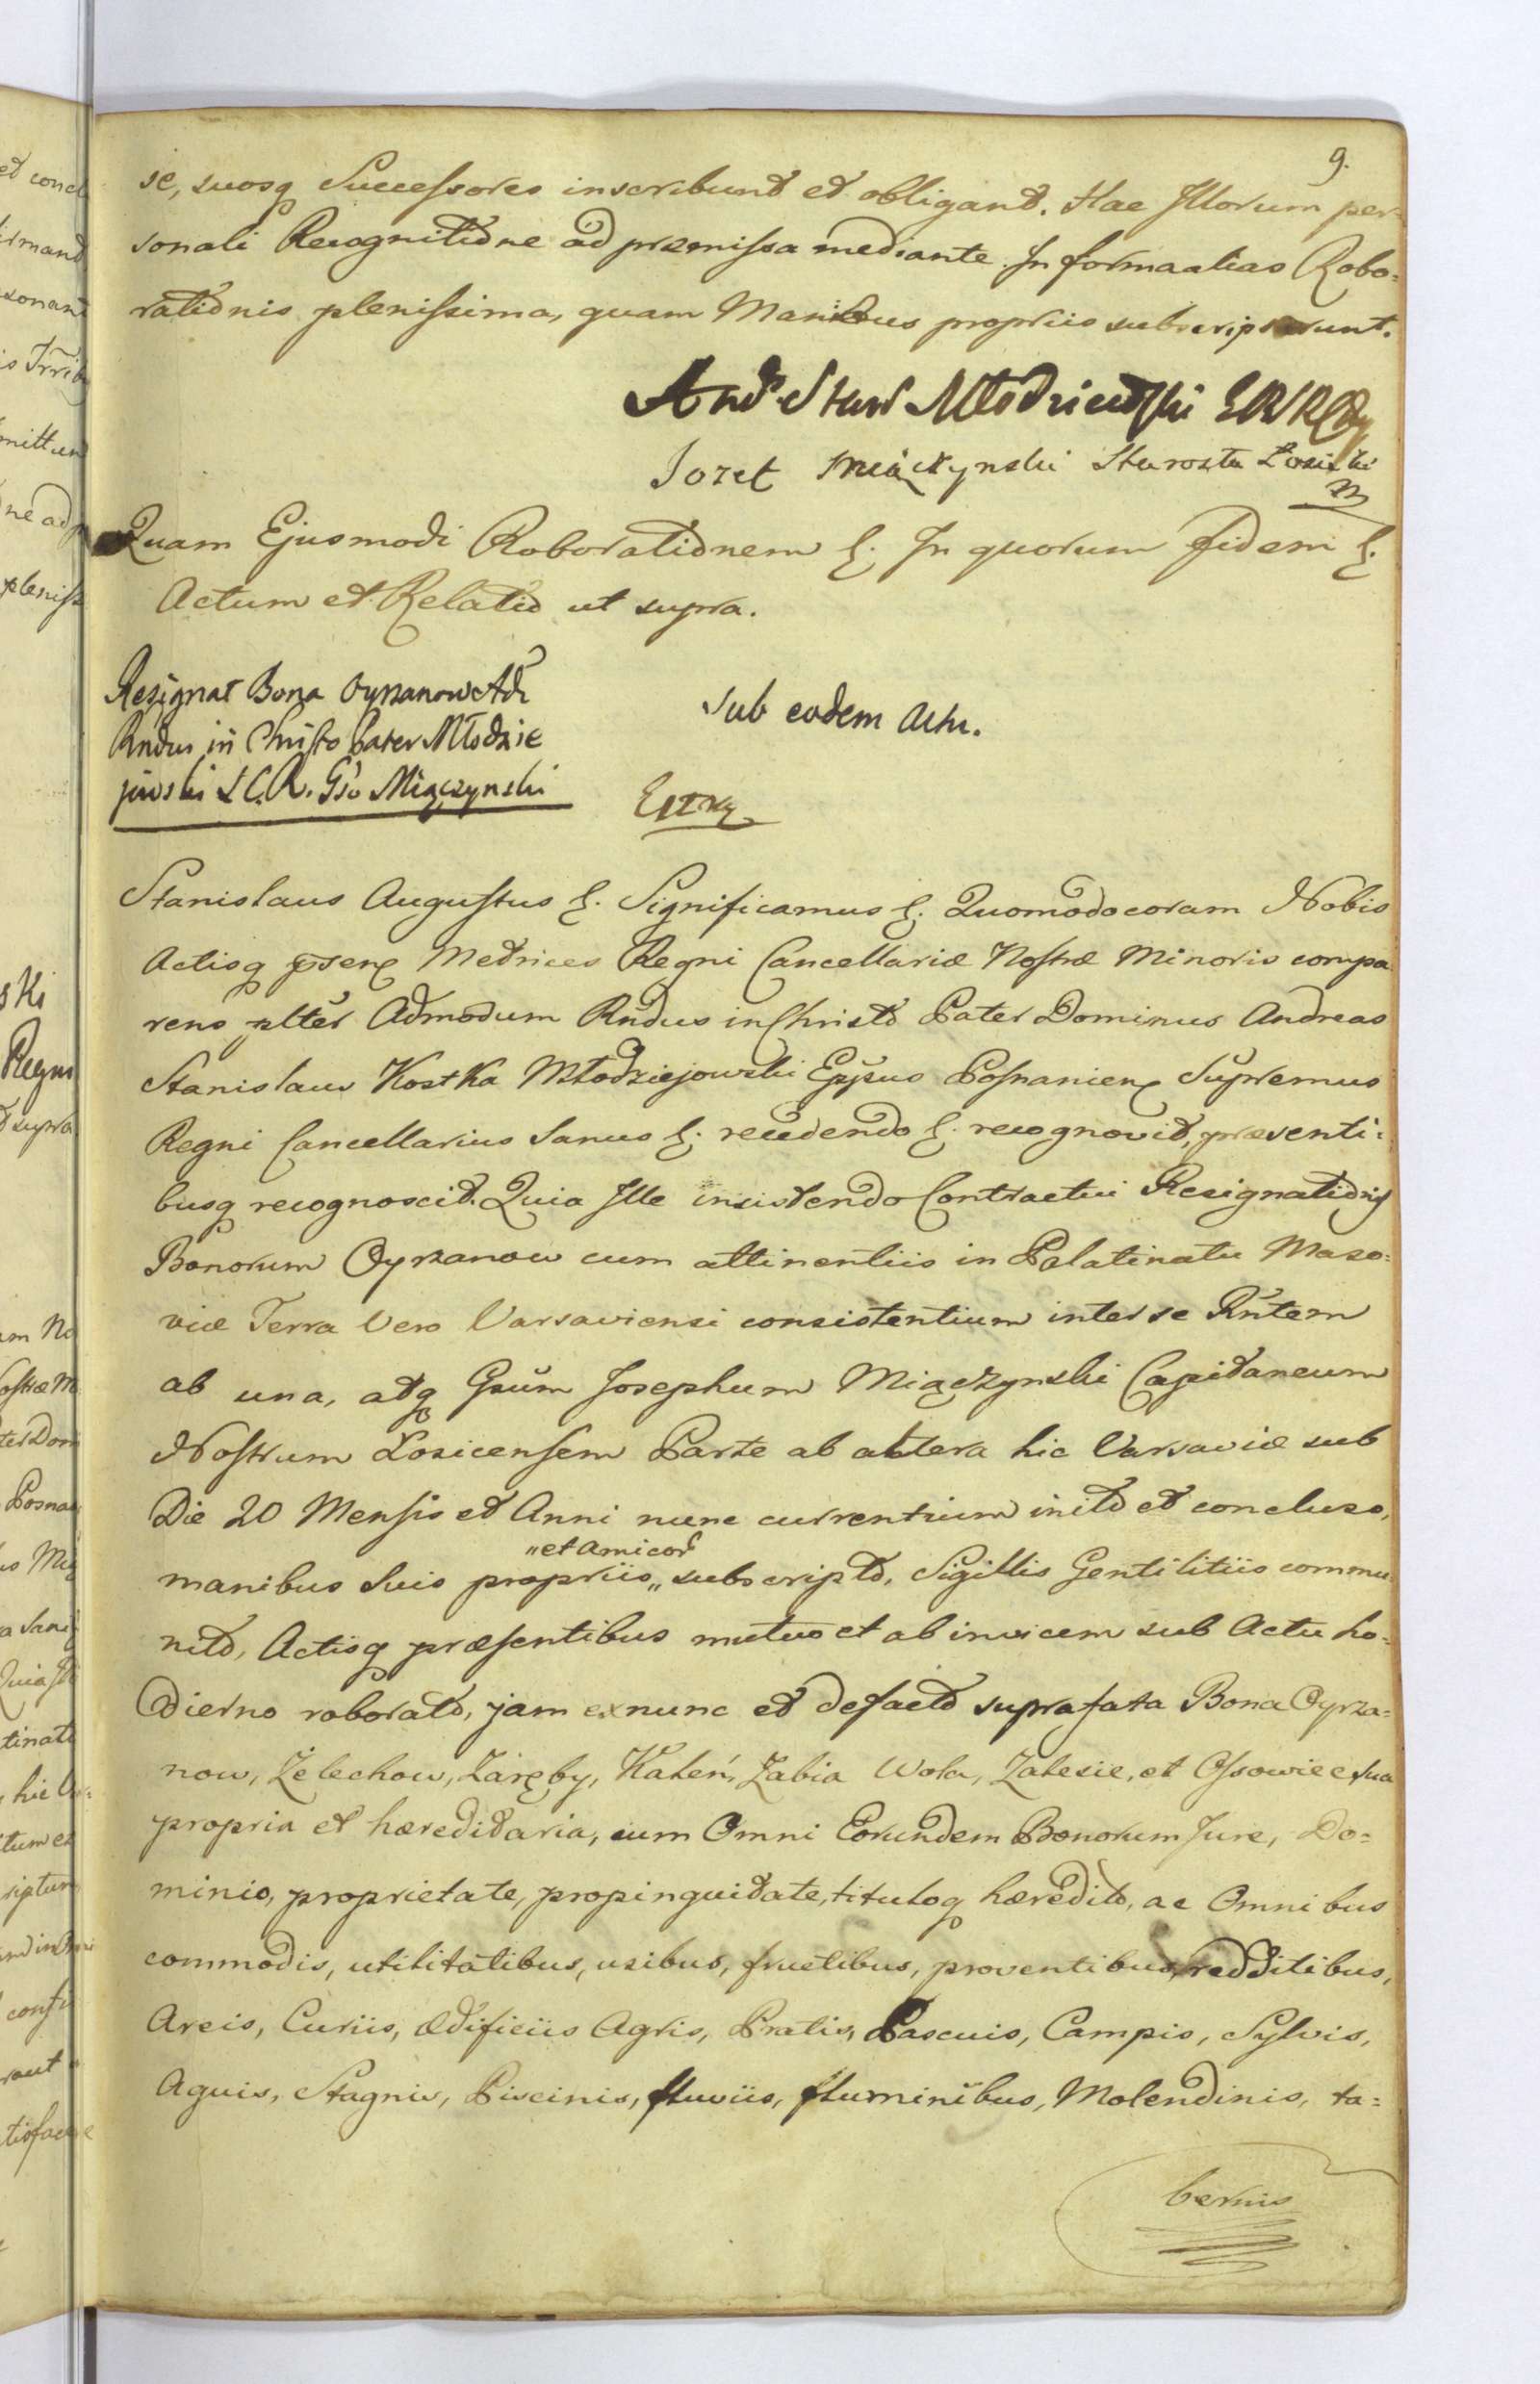 9.
se, suosq Successores inscribunt et obligant. Hac Illorum per=
sonali Recognitione ad præmissa mediante. In forma alias Robo=
rationis plenissima, quam Manibus propriis subscripserunt.
And. Staw Młodzieiowski
Jozef Miączynski Starosta Łosicki
Quam Ejusmodi Roborationem &. In quorum fidem &.
Actum et Relatio ut supra.
Resignat Bona Oyrzanow Adm
Rndus in Christo Pater Młodzie
jowski S.C.R. Gso Miączynski
Sub eodem Actu.
Extx
Stanislaus Augustus &. Significamus &. Quomodo coram Nobis
Actisq psens Metrices Regni Cancellariæ Nostræ Minoris compa
rens plter Admodum Rndus in Christo Pater Dominus Andreas
Stanislaus Kostka Młodziejowski Eppus Posnaniens Supremus
Regni Cancellarius Sanus &. recedendo &. recognovit, præsenti=
busq recognoscit. Quia Ille insistendo Contractui Resignationis
Bonorum Oyrzanow cum attinentiis in Palatinatu Maso=
viæ Terra Vero Varsaviensi consistentium inter se Rntem
ab una, atq Gsum Josephum Miączynski Capitaneum
Nostrum Łosicensem Parte ab altera hic Varsaviæ sub
Die 20 Mensis et Anni nunc currentium inito et concluso,
„et amicor
manibus suis propriis „ subscripto, Sigillis Gentilitiis commu
nito, Actisq præsentibus mutuo et ab invicem sub Actu ho=
dierno roborato, jam ex nunc et defacto suprafata Bona Oyrza=
now, Żelechow, Zaręby, Kaleń, Żabia Wola, Zalesie, et Ossowiec sua
propria et hæreditaria, cum Omni Eorundem Bonorum Jure, Do=
minio, proprietate, propinquitate, tituloq hæredito, ac Omnibus
commodis, utilitatibus, usibus, fructibus, proventibus, redditibus,
Areis, Curiis, ædificiis Agris, Pratis, Pascuis, Campis, Sylvis,
Aquis, Stagnis, Piscinis, fluviis, fluminibus, Molendinis, ta=
bernis